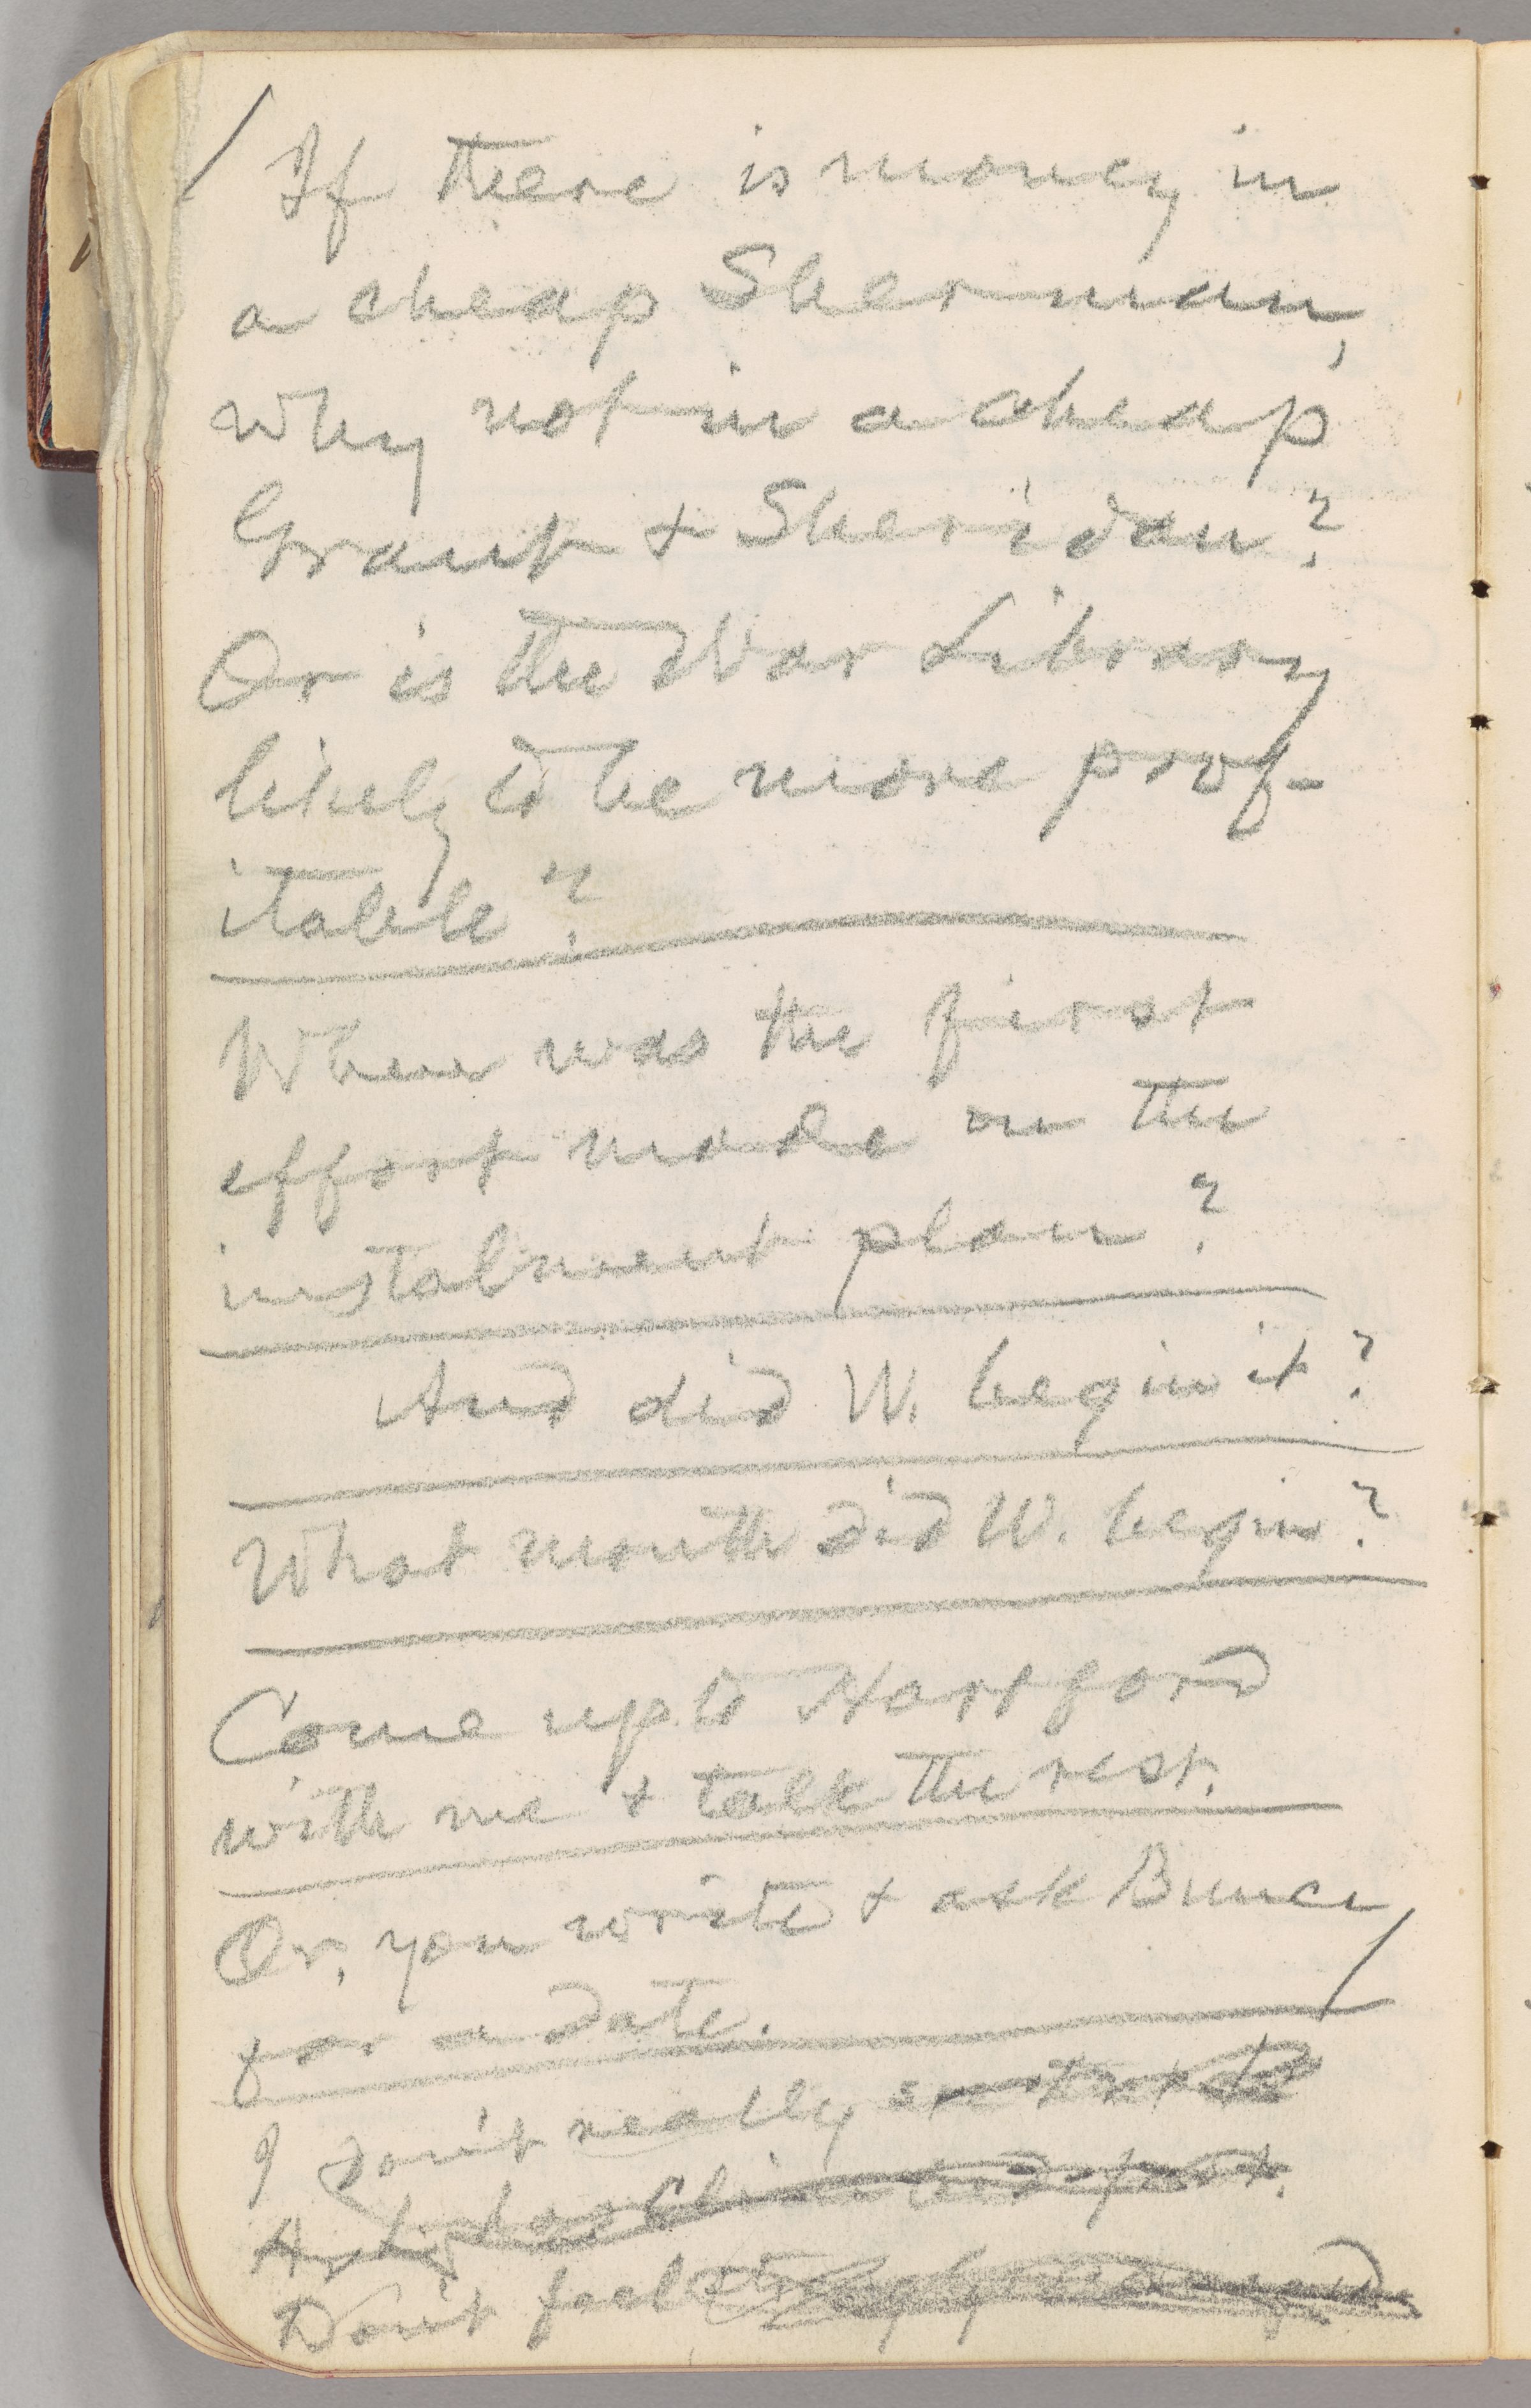 If there is money in
a cheap Sherman,
why not in a cheap
Grant & Sheridan?
Or is the War Library
likely to be more prof-
itable?
When was the first
effort made on the
instalment plan?
And did W. begin it?
What month did W. begin?
Come up to Hartford
with me & talk the rest.
Or, you write & ask Bunce
for a date.
I don't really
Don't feel